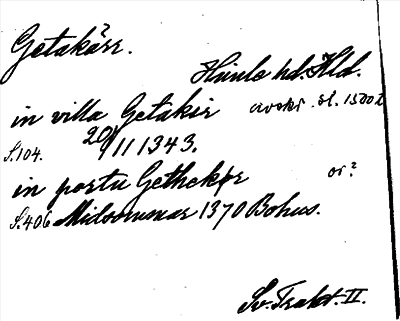 Getakärr.?
Himle hd. Hld.
in villa Getakir avskr. sl. 1500 t
S. 104. 20/11 1343.
in portu Gethekør or?
S. 406 Midsommar 1370 Bohus.
Sv. Trakt. II.